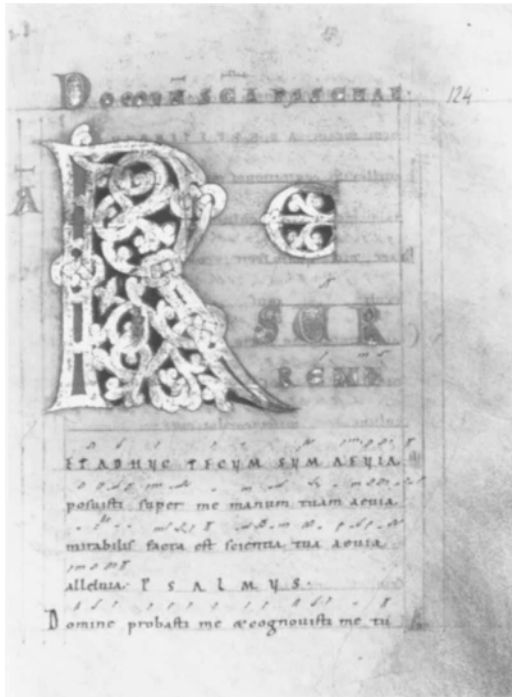 DOMINICA SCA PASCHAE
124
A
RE
SUR
REXI
ET ADHUC TECUM SUM AEUIA
posuisti super me manum tuam aeuia
mirabilis facta est scientia tua aeuia
alleluia PSALMUS.
Domine probasti me & cognouisti me tu